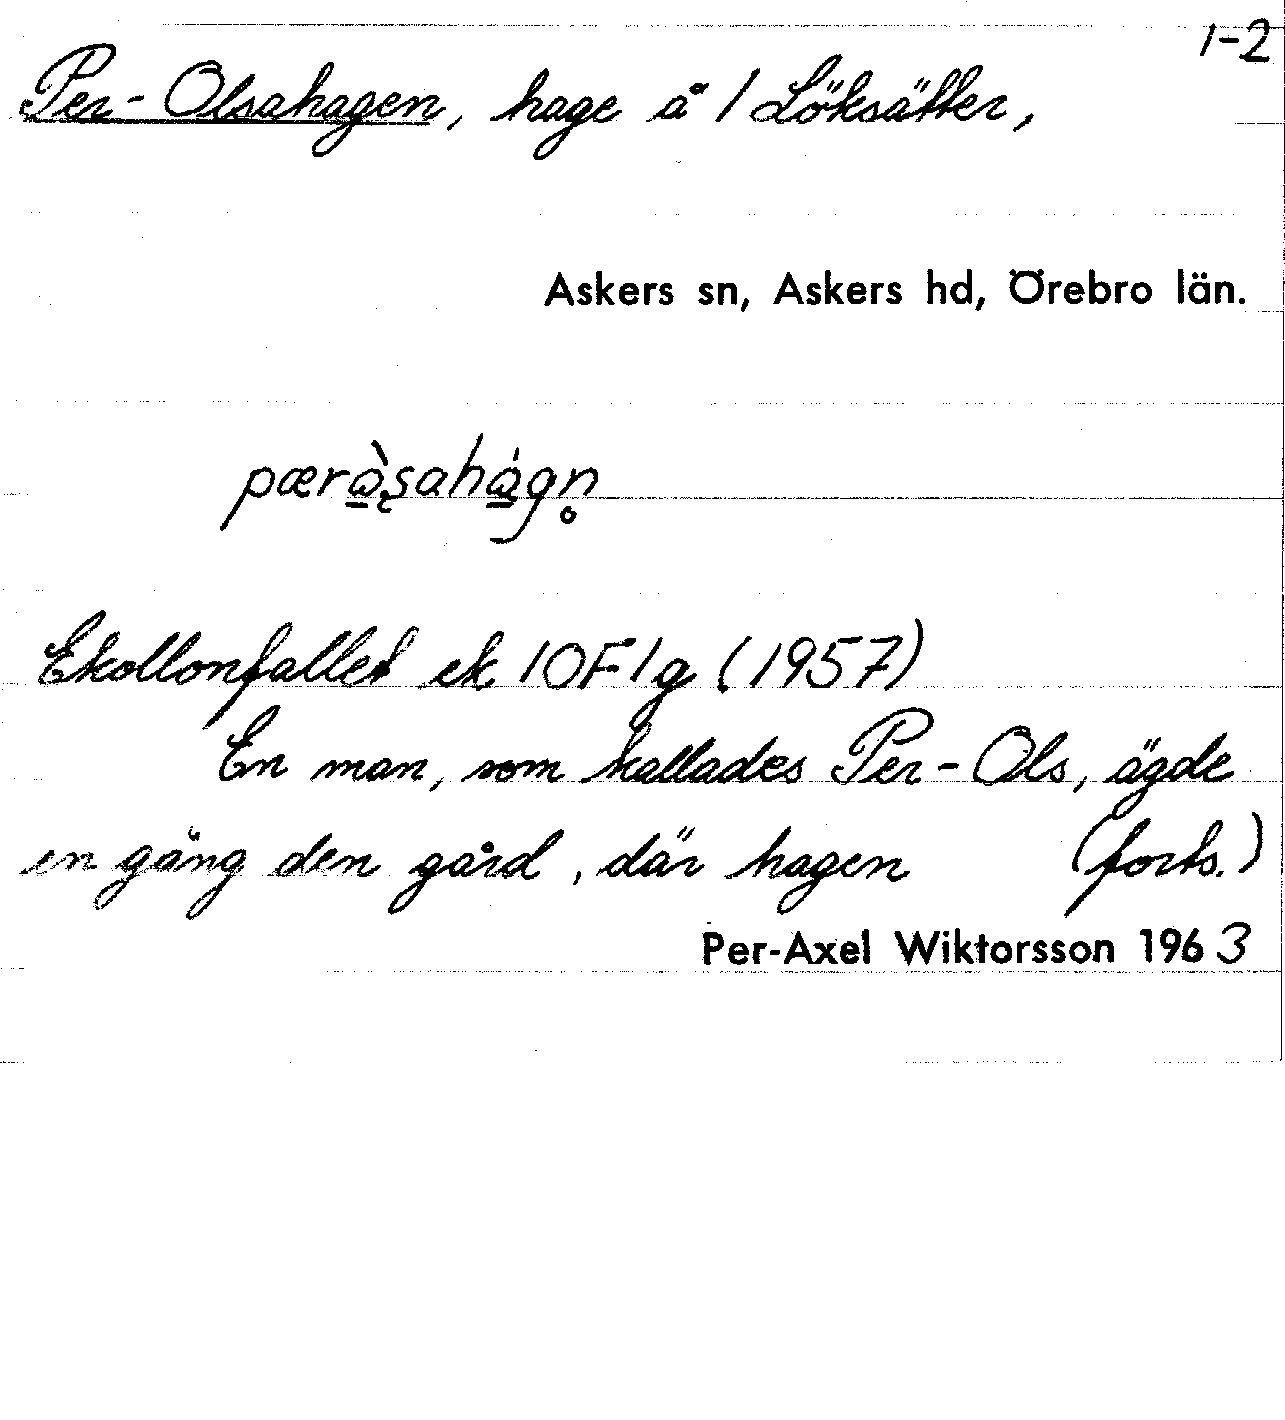 1-2
Per-Olsahagen, hage å 1 Löksätter,
Askers sn, Askers hd, Örebro län.
Ekollonfallet ek 10F1g (1957)
En man, som kallades Per-Ols, ägde
en gång den gård, där hagen (forts.)
Per-Axel Wiktorsson 1963